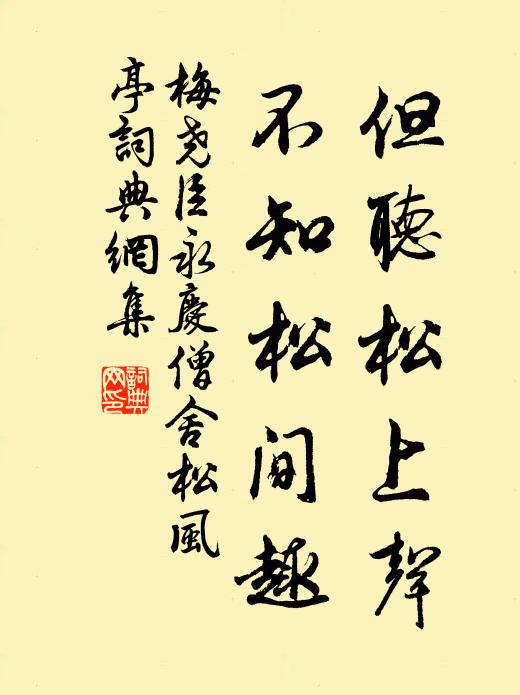 但聽松上聲
不知松間趣
梅堯臣永慶僧舍松風
亭詞典網集
詞典
网印